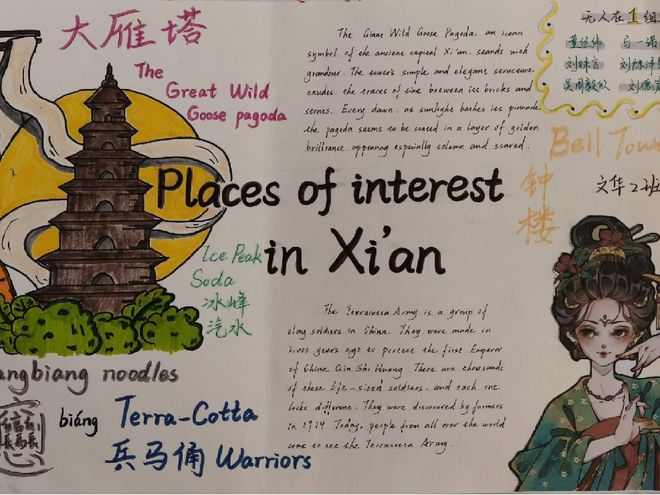 大雁塔
The
Great Wild
Goose pagoda
The Giant Wild Goose Pagoda, an iconic
symbol of the ancient capital Xi'an, stands with
grandeur. The tower's simple and elegant structure
exudes the traces of time between its bricks and
stones. Every dawn, as sunlight bathes its pinnacle
the pagoda seems to be coated in a layer of golden
brilliance, appearing especially solemn and scared.
无人在1组
刘
Bell Tow
钟
楼
文华2班
Places of interest
in Xi'an
Ice Peak
Soda
冰峰
汽水
The Terracotta Army is a group of
clay soldiers in China. They were made in
2,000 years ago to protect the first Emperor
of China, Qin Shi Huang. There are thousands
of these life-sized soldiers, and each one
looks different. They were discovered by farmers
in 1974. Today, people from all over the world
come to see the Terracotta Army.
angbiang noodles
biáng
Terra-Cotta
兵马俑 Warriors